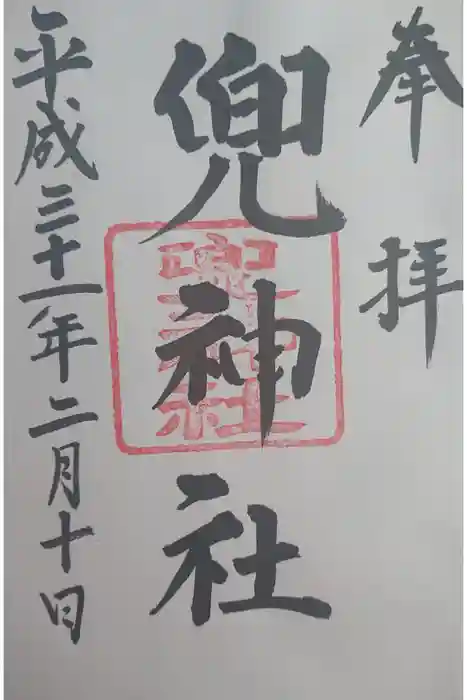 奉拝
兜神社
平成三十一年二月十日